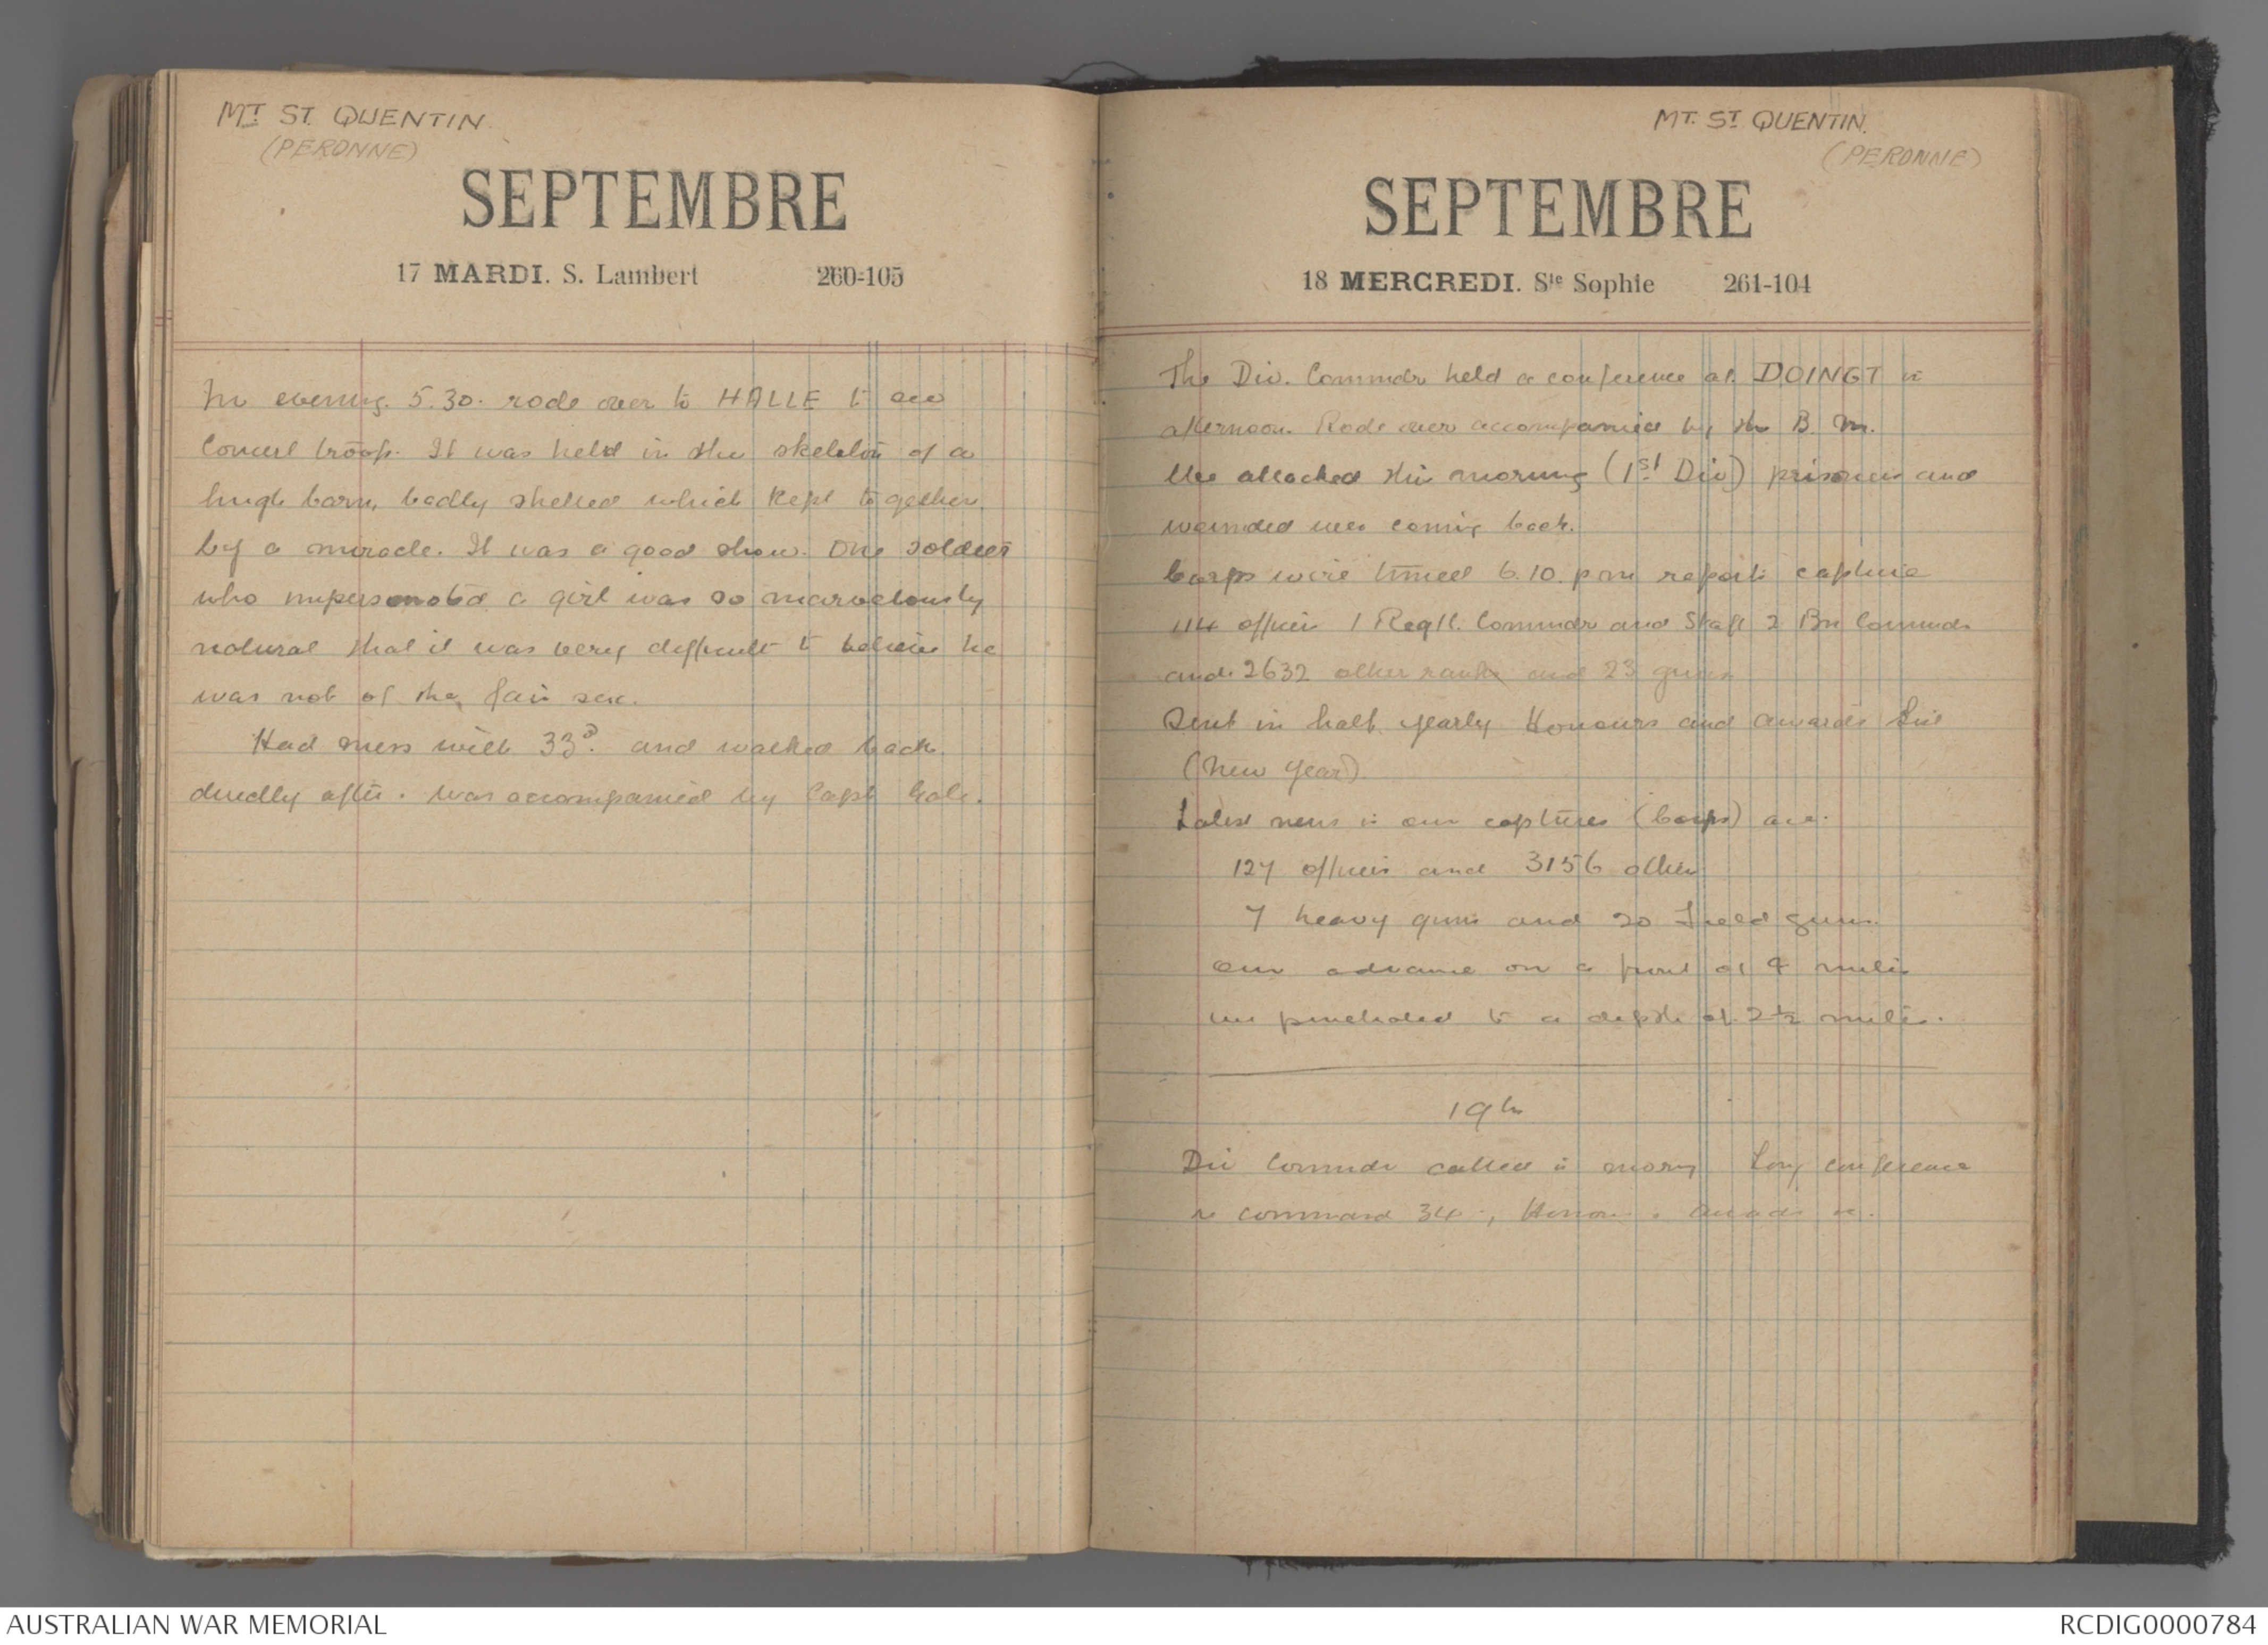 MT ST. QUENTIN.
(PERONNE)
SEPTEMBRE
17 MARDI. S. Lambert 260-105
In evening. 5.30. rode over to HALLE to see
Concert troop. It was held in the skeleton of a
hugh barn, badly shelled which kept together
by a miracle. It was a good show. One soldier
who impersonated a girl was so marvelously
natural that it was very difficult to believe he
was not of the fair sex.
Had mess with 33d. and walked back
directly after. was accompanied by Capt Gale.
MT. ST QUENTIN.
(PERONNE)
SEPTEMBRE
18 MERCREDI. Ste Sophie 261-104
The Div. Commdr held a conference at DOINGT in
afternoon. Rode over accompanied by the B. M.
We attacked this morning (1st Div) prisoners and
wounded were coming back.
Corps wire timed 6.10. pm reports capture
114 officers 1 Regtl. Commdr and Staff 2 Bn Commdr
and 2632 other ranks and 23 guns
Sent in half yearly Honours and awards list
(New Year)
Latest news is our captures (Corps) are.
127 officers and 3156 others
7 heavy guns and 20 Field guns.
our advance on a front of 4 miles
we penetrated to a depth of 2½ miles.
19th
Div Commdr called in morng Long conference
re command 34, Honours Awards
AUSTRALIAN WAR MEMORIAL
RCDIG0000784